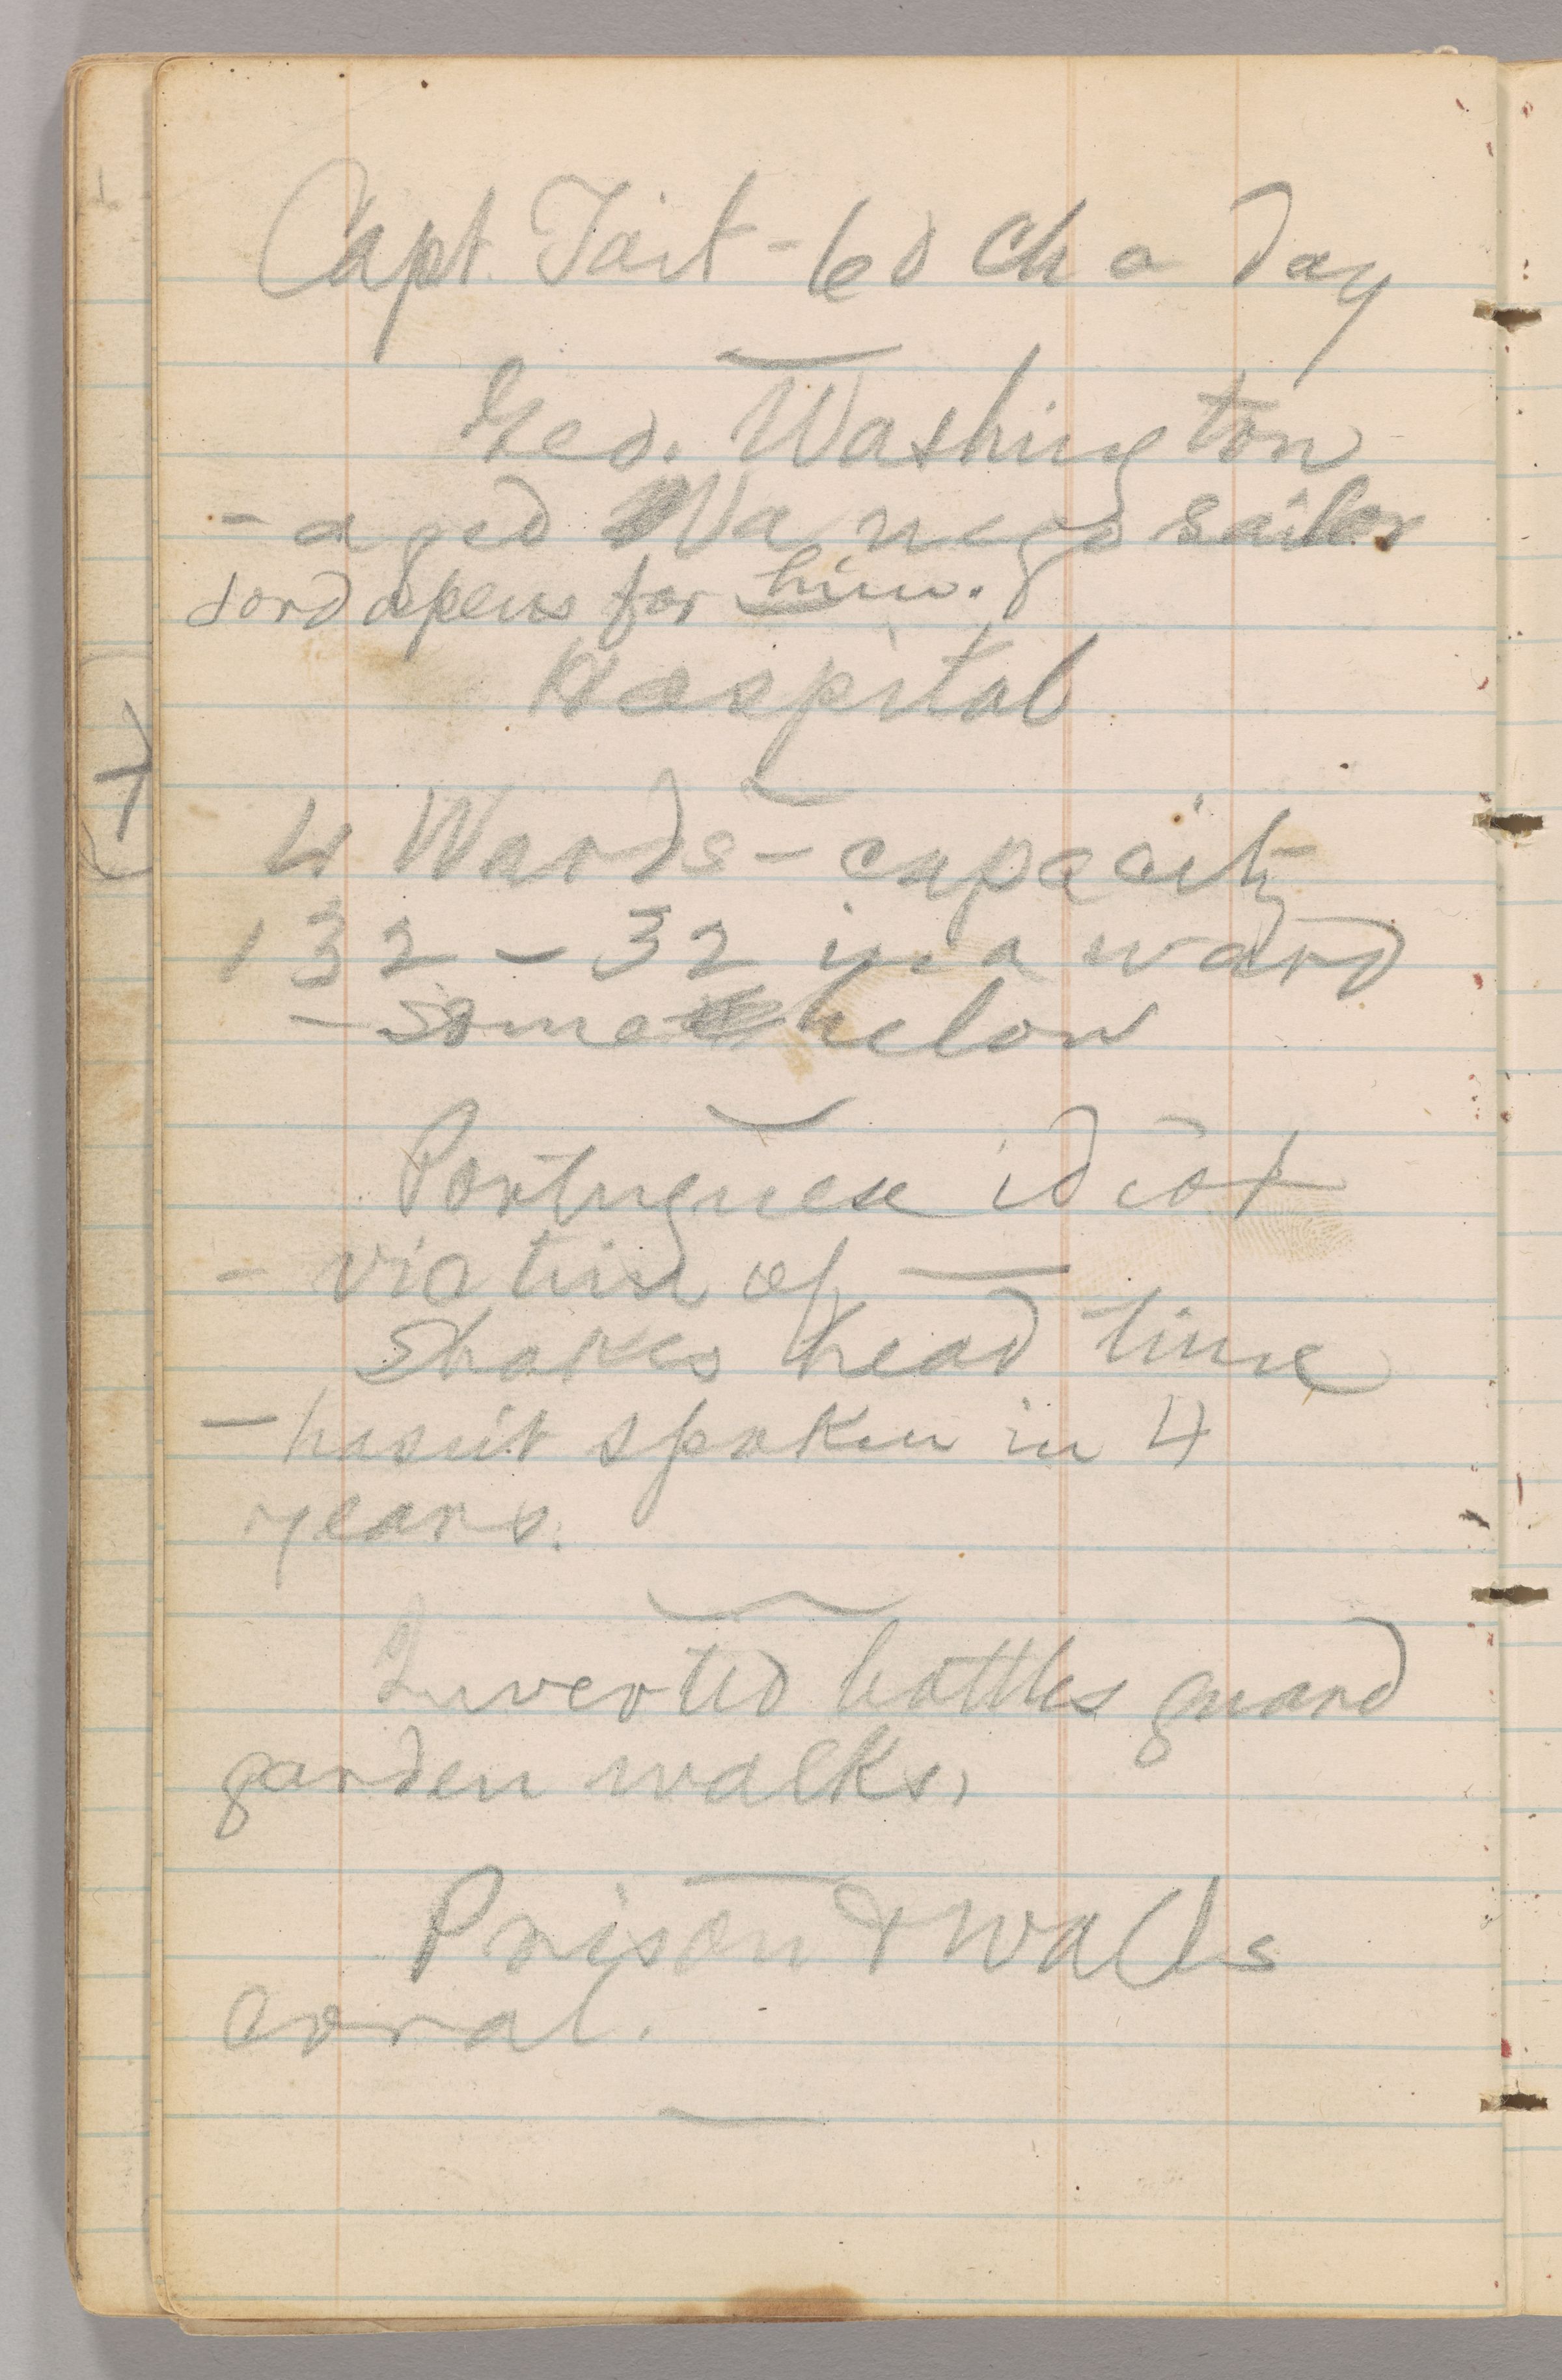 Capt. Tait - 60 ch a day
Geo. Washington
- aged Va negro sailor
opens for him.
Hospital
4 Wards - capacity
132 - 32 in a ward
- some below
Portuguese idiot
- victim of —
Shakes head time
- hasn't spoken in 4
years.
Inverted bottles guard
garden walks,
Prison & walls
coral.